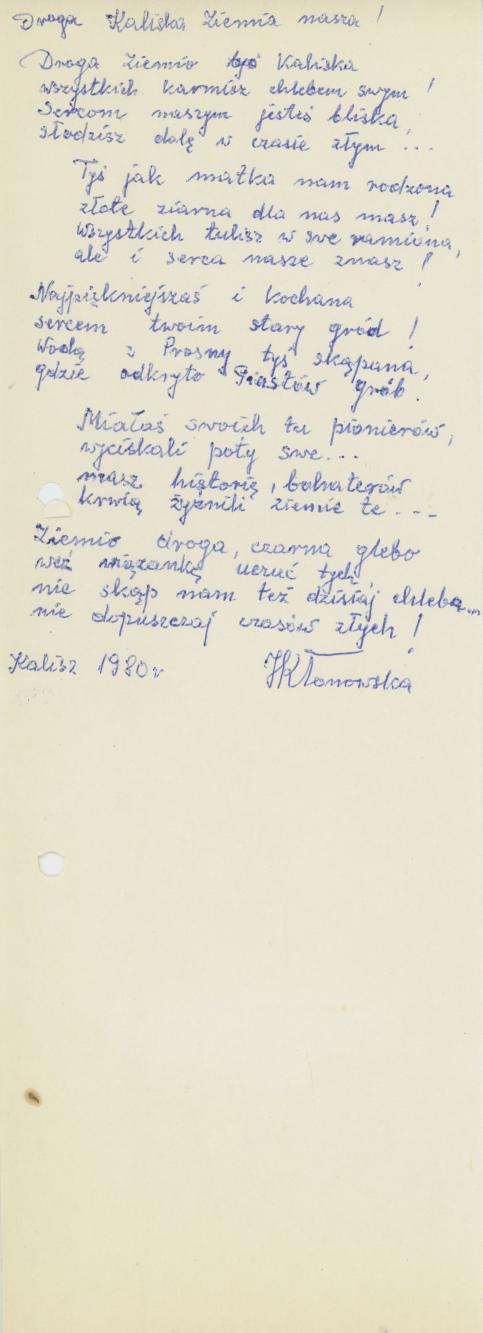 Droga Kaliska Ziemia nasza!
Droga Ziemio tyś Kaliska
wszystkich karmisz chlebem swym!
Sercom naszym jesteś bliska,
słodzisz dolę w czasie złym...
Tyś jak matka nam rodzona
złote ziarna dla nas masz!
Wszystkich tulisz w swe ramiona,
ale i serca nasze znasz!
Najpiękniejszaś i kochana
sercem twoim stary gród!
Wodą z Prosny tyś skąpana,
gdzie odkryto Piastów grób.
Miałaś swoich tu pionierów,
wyciskali poty swe...
masz historię, bohaterów
krwią żyźnili ziemie te....
Ziemio droga, czarna glebo
weź wiązankę uczuć tych,
nie skąp nam też dzisiaj chleba...
nie dopuszczaj czasów złych!
Kalisz 1980r
HKłonowska